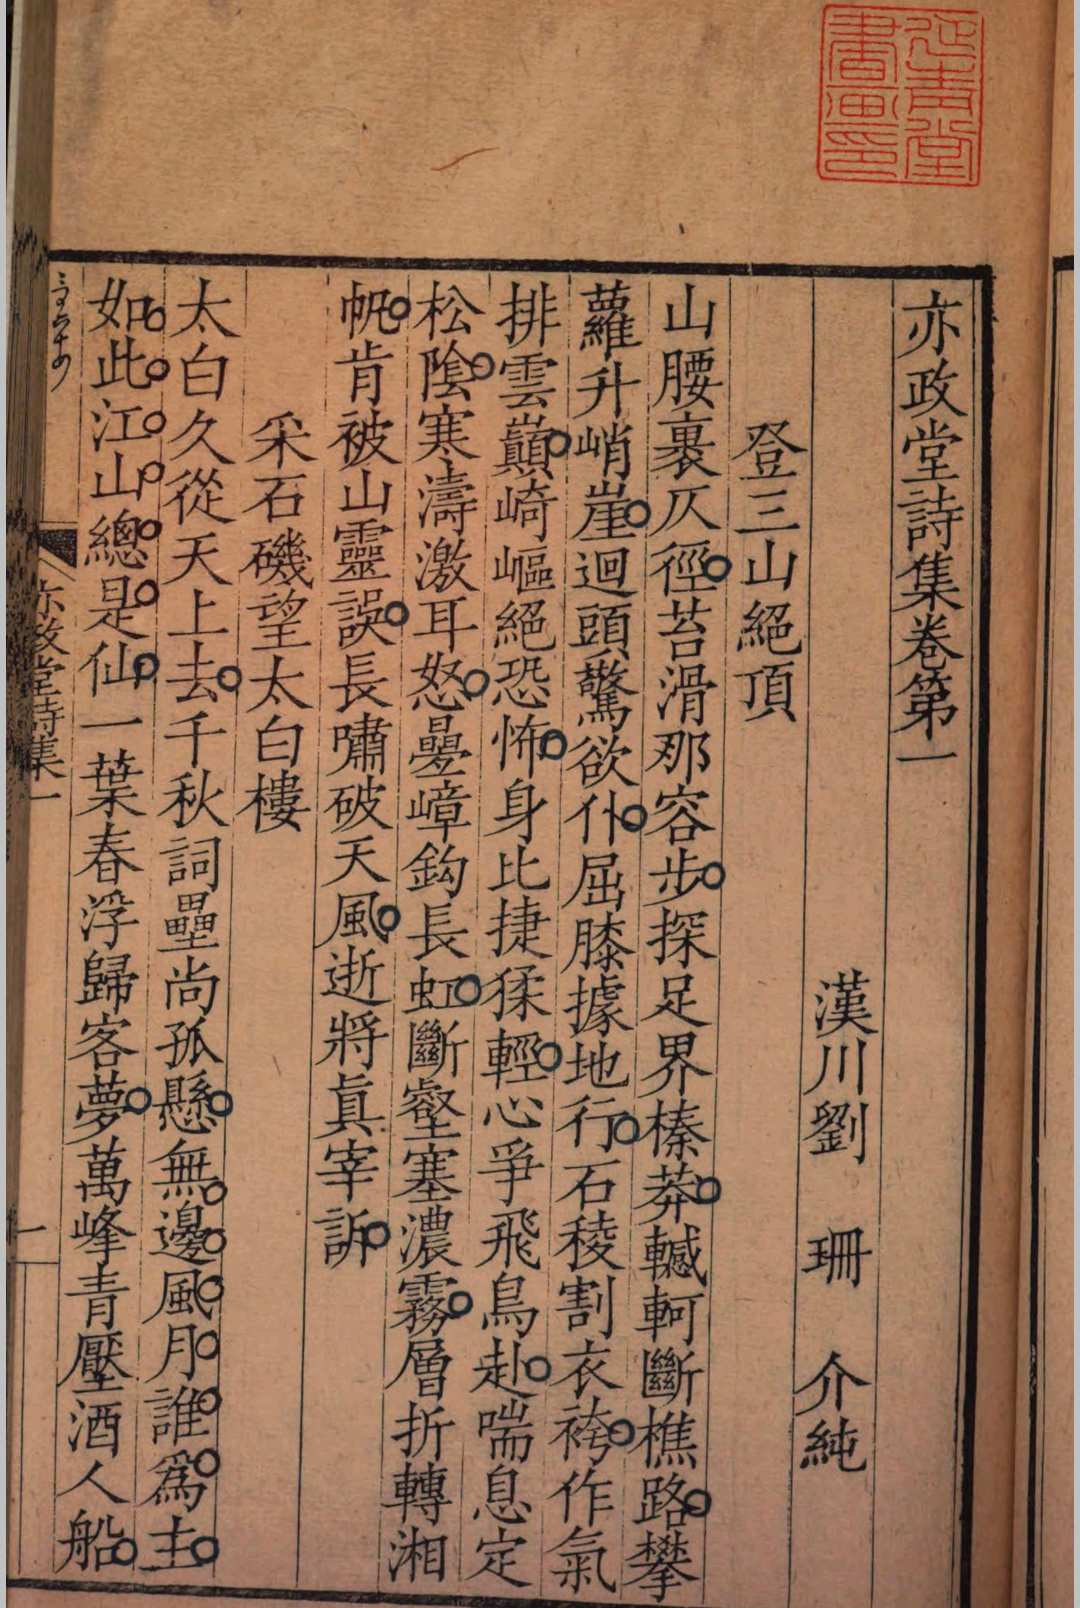 延青堂
書画印
亦政堂詩集卷第一
漢川劉珊介純
登三山絕頂
山腰裹仄徑苔滑那容步探足界榛莽轗軻斷樵路攀
蘿升峭崖迴頭驚欲仆屈膝據地行石稜割衣袴作氣
排雲巔崎嶇絕恐怖身比捷猱輕心爭飛鳥赴喘息定
松陰寒濤激耳怒疊嶂鈎長虹斷壑塞濃霧層折轉湘
帆肯被山靈誤長嘯破天風逝將眞宰訴
采石磯望太白樓
太白久從天上去千秋詞壘尚孤懸無邊風月誰爲主
如此江山總是仙一葉春浮歸客夢萬峰青壓酒人船
亦政堂詩集一
一